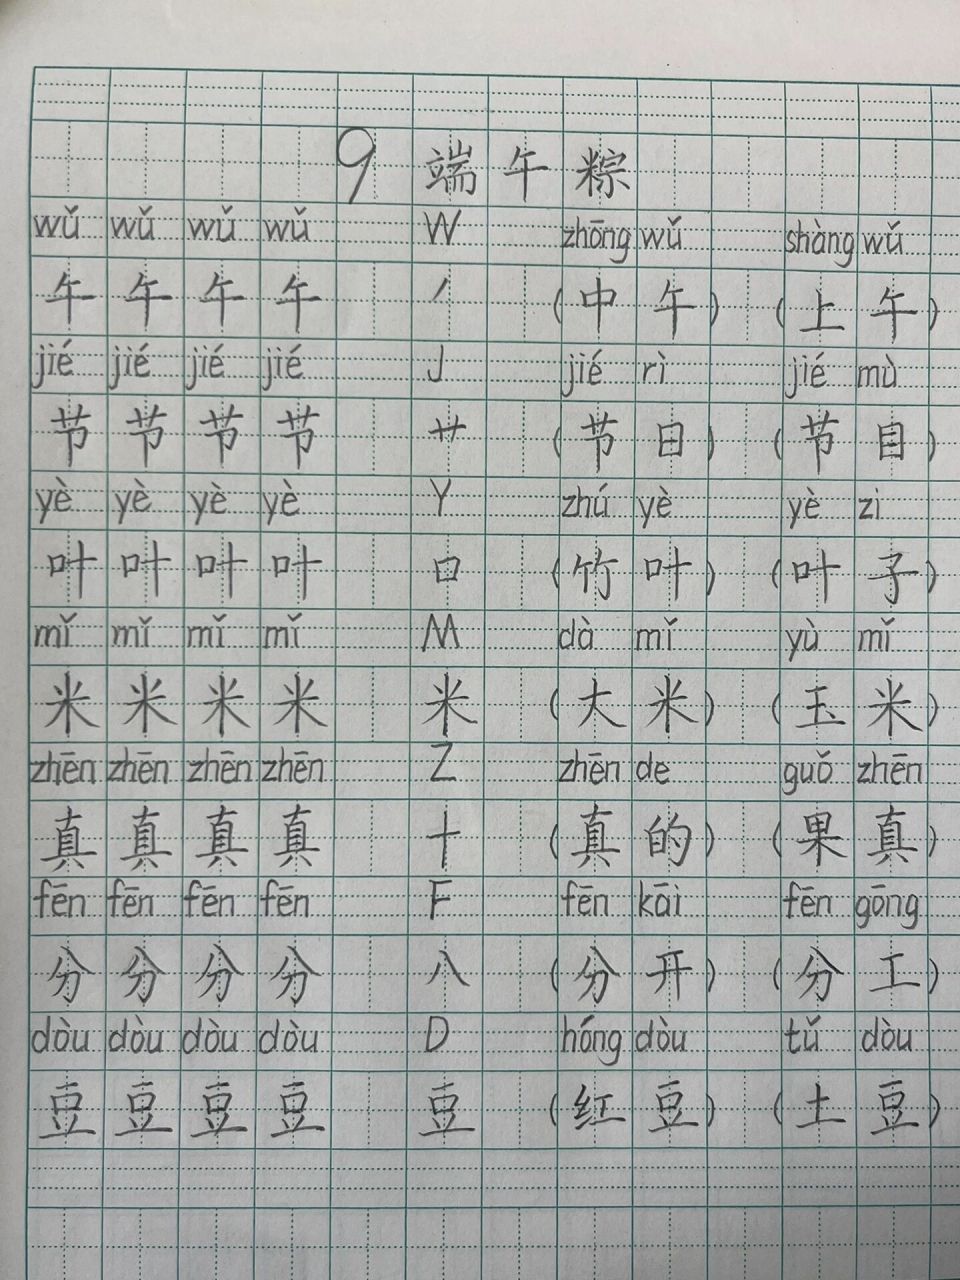 9 端午粽
wǔ wǔ wǔ wǔ W zhōng wǔ shàng wǔ
午 午 午 午 丿 (中午) (上午)
jié jié jié jié J jié rì jié mù
节 节 节 节 艹 (节日) (节目)
yè yè yè yè Y zhú yè yè zi
叶 叶 叶 叶 口 (竹叶) (叶子)
mǐ mǐ mǐ mǐ M dà mǐ yù mǐ
米 米 米 米 米 (大米) (玉米)
zhēn zhēn zhēn zhēn Z zhēn de guǒ zhēn
真 真 真 真 十 (真的) (果真)
fēn fēn fēn fēn F fēn kāi fēn gōng
分 分 分 分 八 (分开) (分工)
dòu dòu dòu dòu D hóng dòu tǔ dòu
豆 豆 豆 豆 豆 (红豆) (土豆)